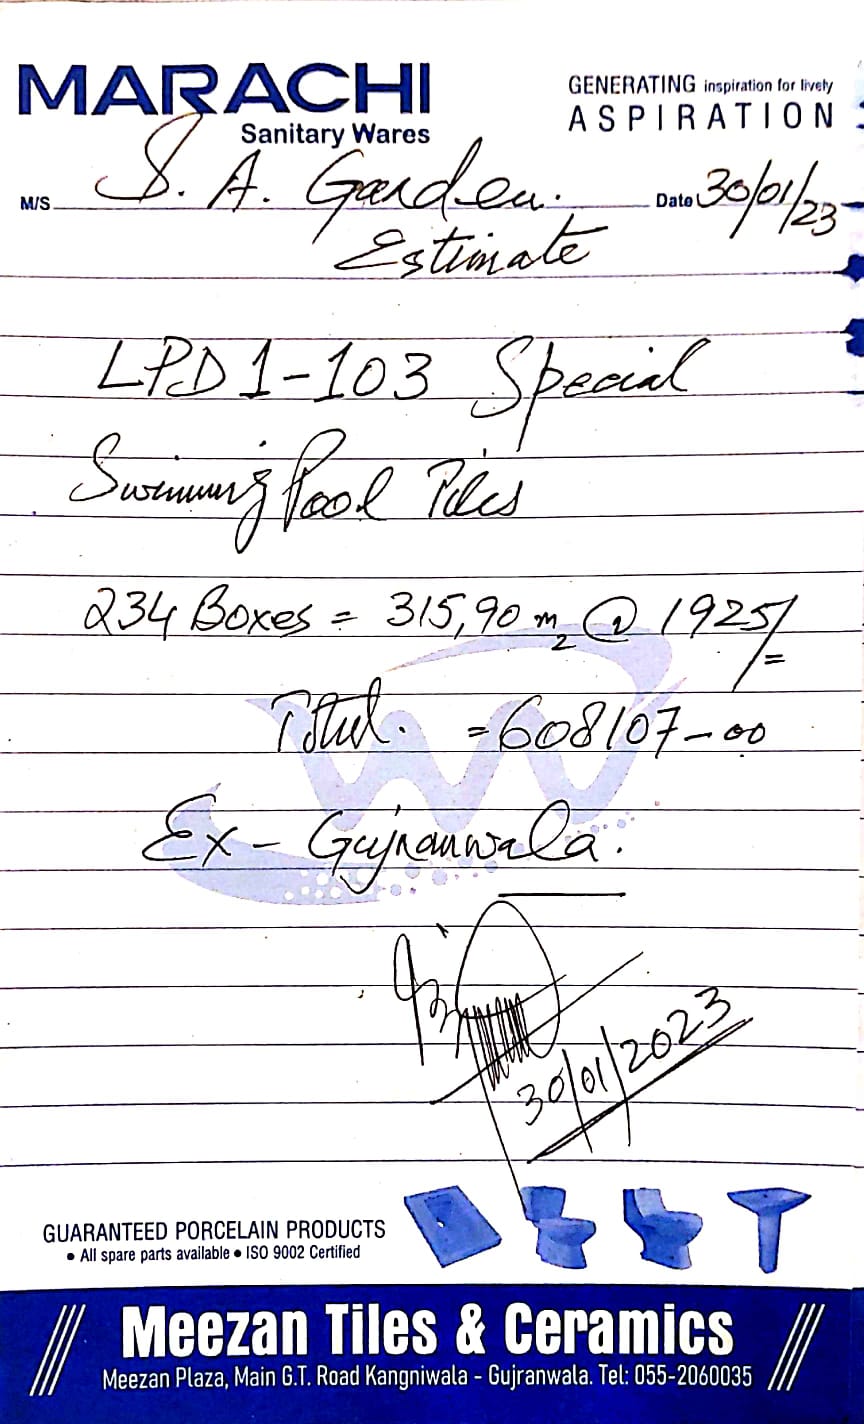 MARACHI
Sanitary Wares
GENERATING inspiration for lively
ASPIRATION
M/S S. A. Garden. Date 30/01/23
Estimate
LPD1-103 Special
Swimming Pool Tiles
234 Boxes = 315,90 m2 @ 1925/=
Total. =608107-00
Ex- Gujranwala.
30/01/2023
GUARANTEED PORCELAIN PRODUCTS
• All spare parts available • ISO 9002 Certified
Meezan Tiles & Ceramics
Meezan Plaza, Main G.T. Road Kangniwala - Gujranwala. Tel: 055-2060035